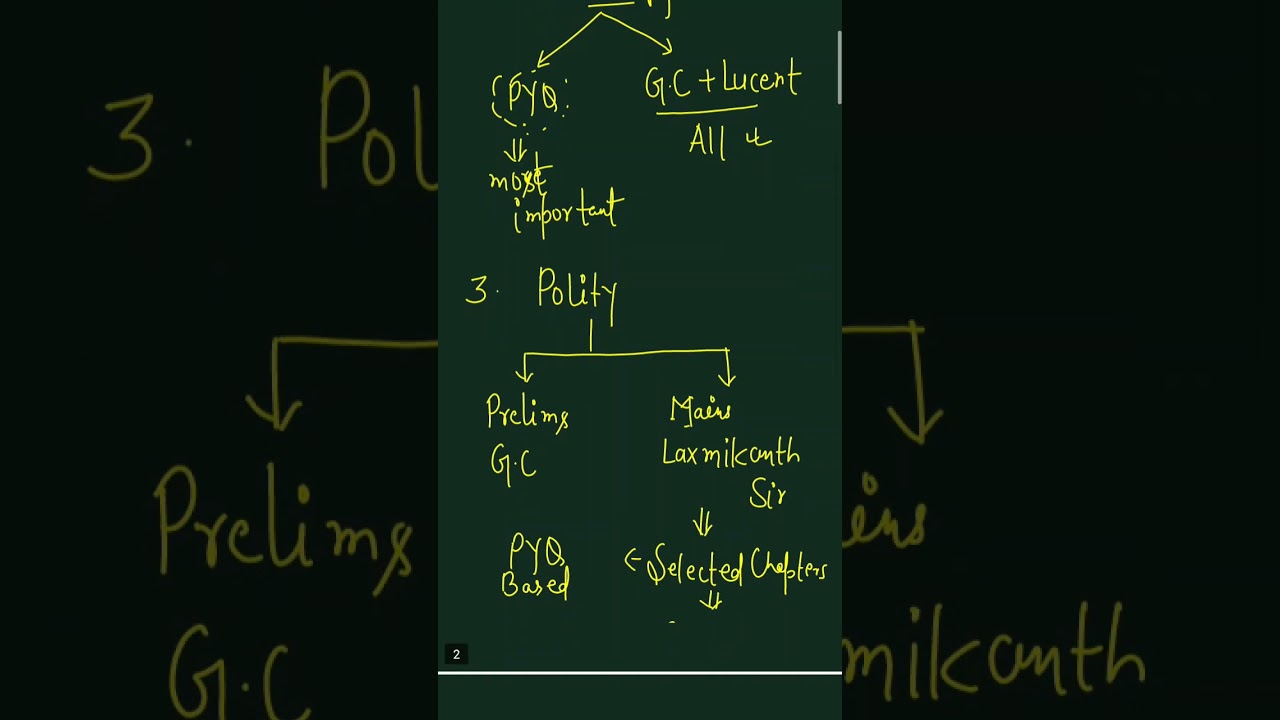 PYQ
G.C + Lucent
All
most
important
3. Polity
Prelims
Mains
G.C
Laxmikanth
Sir
PYQ
Based
Selected Chapters
2